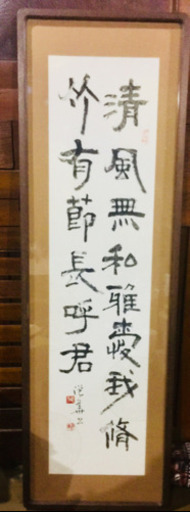 清風無私雅愛我脩
竹有節長呼君